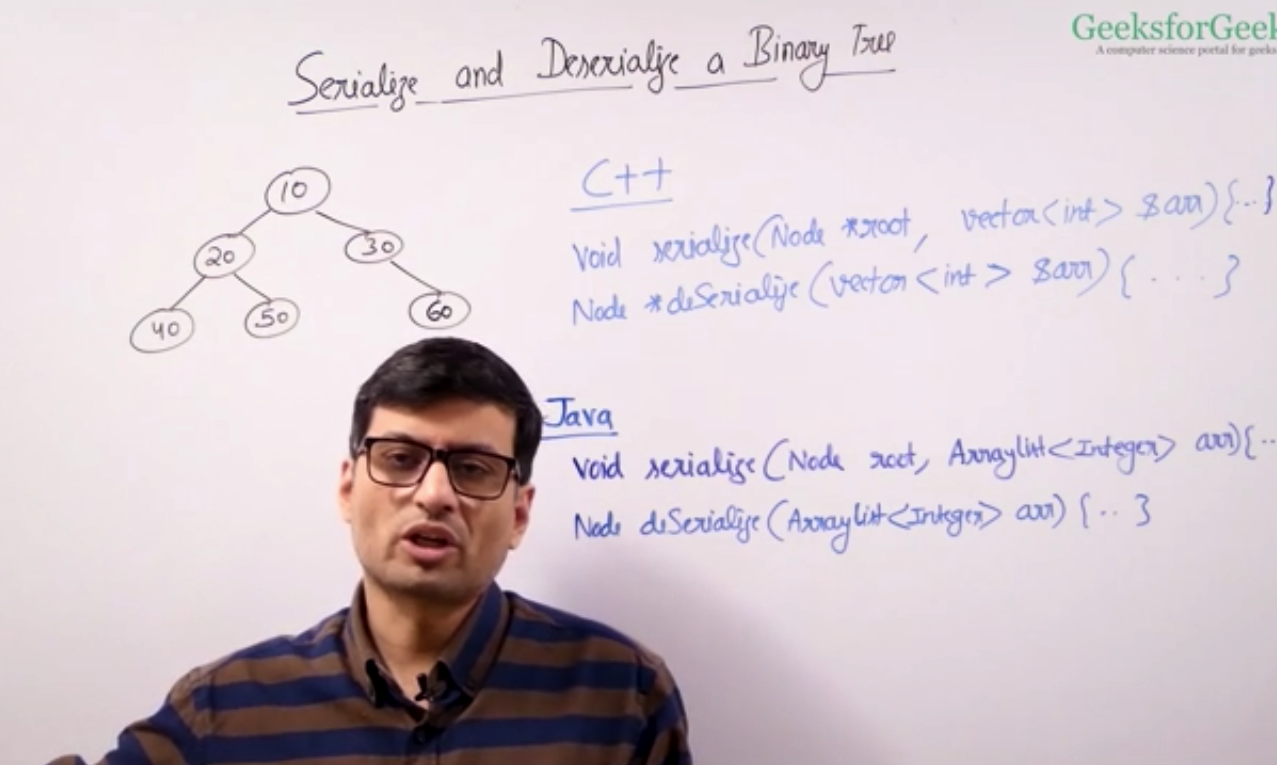 GeeksforGeek
A computer science portal for geeks
Serialize and Deserialize a Binary Tree
10
20
30
40
50
60
C++
Void serialize(Node *root, vector<int> &arr){..}
Node *deSerialize(vector<int> &arr){ . . . . }
Java
Void serialize(Node root, Arraylist<Integer> arr){..
Node deSerialize(Arraylist<Integer> arr) {..}